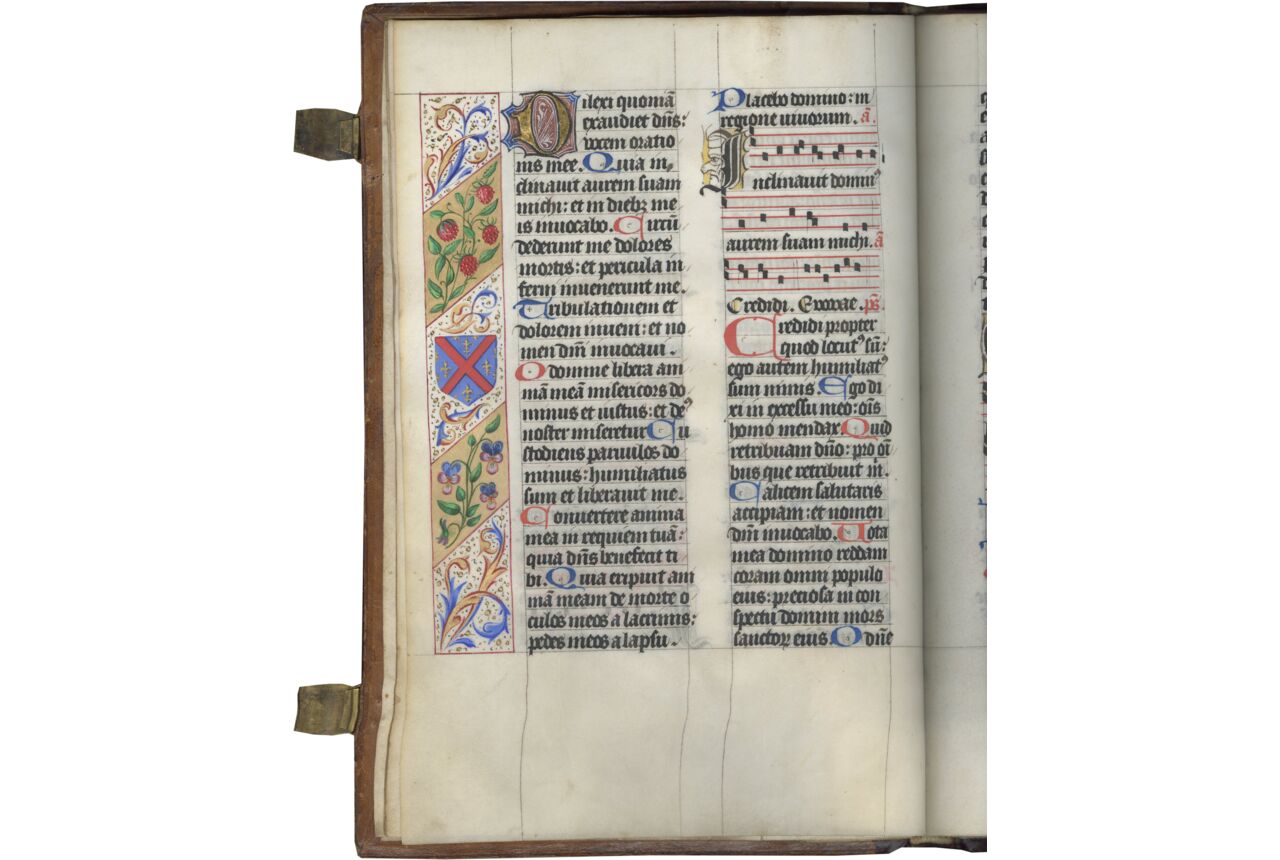 Dilexi quoniā
exaudiet dn̄s:
vocem oratio
nis mee. Quia in
clinauit aurem suam
michi: et in diebꝫ me
is inuocabo. Circū
dederunt me dolores
mortis: et pericula in
ferni inuenerunt me.
Tribulationem et
dolorem inueni: et no
men dn̄i inuocaui.
O domine libera ani
mā meā misericors do
minus et iustus: et deꝰ
noster miseretur Cu
stodiens paruulos do
minus: humiliatus
sum et liberauit me.
Conuertere anima
mea in requiem tuā:
quia dn̄s benefecit ti
bi. Quia eripuit ani
mā meam de morte o
culos meos a lacrimis:
pedes meos a lapsu.
Placebo domino: in
regione uiuorum. ā.
Inclinauit dominꝰ
aurem suam michi. ā
Credidi. Evovae. ps̄.
Credidi propter
quod locutꝰ sū:
ego autem humiliatꝰ
sum nimis Ego di
xi in excessu meo: oīs
homo mendax. Quid
retribuam dn̄o: pro oī
bus que retribuit m̄.
Calicem salutaris
accipiam: et nomen
dn̄i inuocabo. Uota
mea domino reddam
coram omni populo
eius: preciosa in con
spectu domini mors
sanctoꝝ eius. O dn̄e